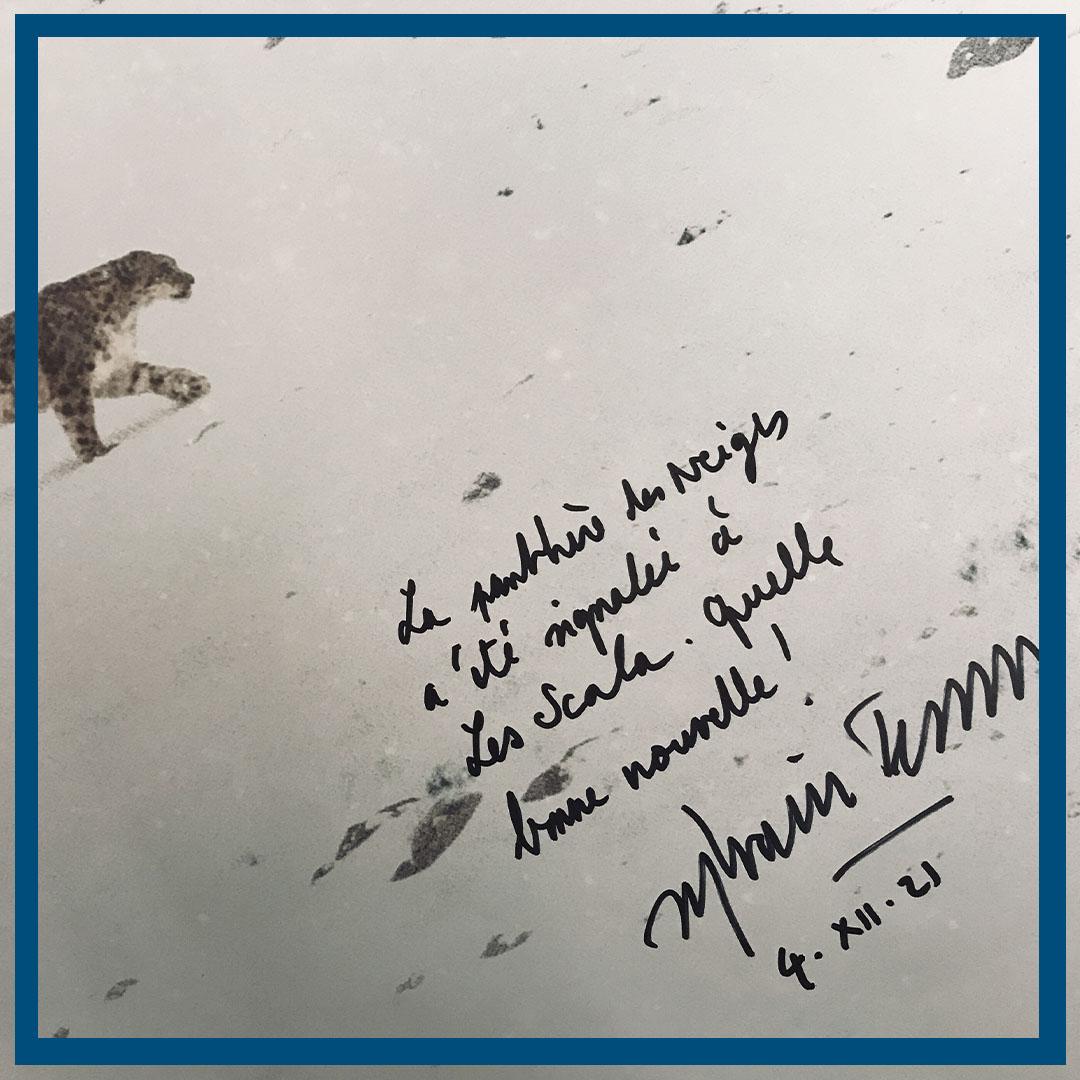 La panthère des Neiges
a été signalée à
Les Scala. Quelle
bonne nouvelle !
Sylvain Tesson
4. XII. 21